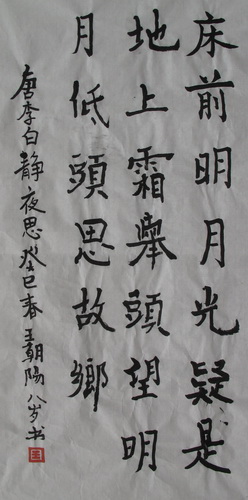 床前明月光疑是
地上霜舉頭望明
月低頭思故鄉
唐李白靜夜思癸巳春王朝陽八岁书
王